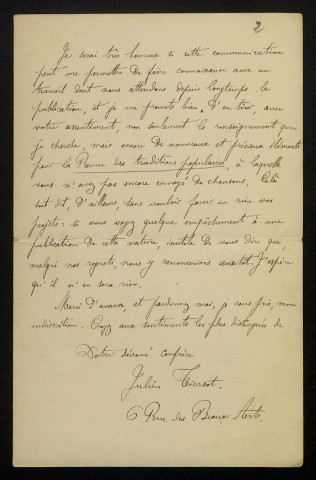 2
Je serai très heureux si cette communication
peut me permettre de faire connaissance avec un
travail dont nous attendons depuis longtemps la
publication, et je me promets bien d'en tirer, avec
votre assentiment, non seulement le renseignement que
je cherche, mais encore de nouveaux et précieux éléments
pour la Revue des traditions populaires, à laquelle
vous n'avez pas encore envoyé de chansons. Cela
soit dit, d'ailleurs, sans vouloir forcer en rien vos
projets : si vous voyez quelque empêchement à une
publication de cette nature, inutile de vous dire que,
malgré nos regrets, nous y renoncerions aussitôt. J'espère
qu'il n'en sera rien.
Merci d'avance, et pardonnez moi, je vous prie, mon
indiscrétion. Croyez aux sentiments les plus distingués de
Votre dévoué confrère
Julien Tiersot.
6 Rue des Beaux Arts.